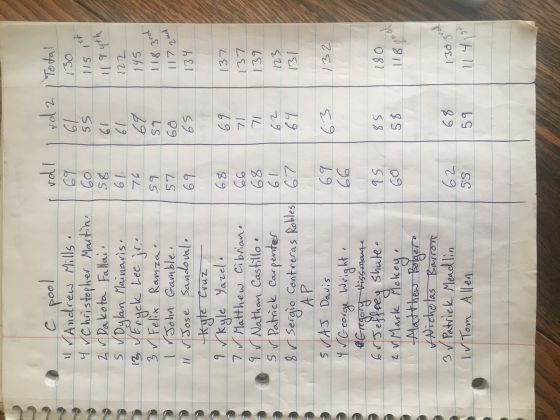 C pool rd1 rd2 Total
11 ✓ Andrew Mills. 69 61 130
4 ✓ Christopher Martin. 60 55 115 1st
2 ✓ Dakota Fallai. 58 61 119 4th
5 ✓ Dylan 61 61 122
13 ✓ Eryck Lee jr. 76 69 145
3 ✓ Felix Ramza. 59 59 118 3rd
1 ✓ John Gamble. 57 60 117 2nd
11 ✓ Jose Sandoval. 69 65 134
Kyle Cruz
9 ✓ Kyle Yazel. 68 69 137
7 ✓ Matthew Cibrian. 66 71 137
9 ✓ Nathan Castillo. 68 71 139
5 ✓ Patrick Carpenter 61 62 123
8 ✓ Sergio Contreras Robles 67 64 131
AP
5 ✓ AJ Davis 69 63 132
4 ✓ George Wright. 66
Gregory
6 ✓ Jeffrey Shale. 95 85 180
2 ✓ Mark Mokey. 60 58 118
Matthew Boger.
Nicholas Barron
3 ✓ Patrick Meadlin 62 68 130
1 ✓ Tom Allen 55 59 114 1st